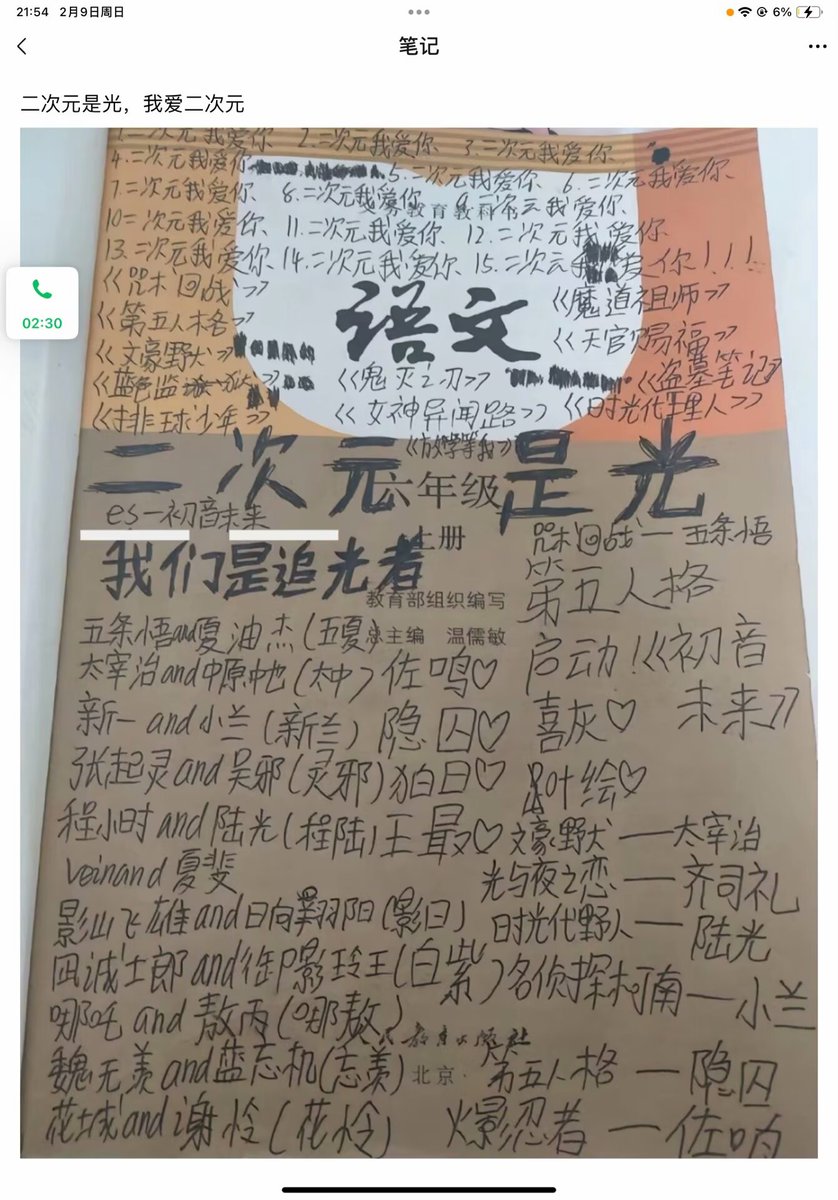 21:54 2月9日周日
6%
笔记
二次元是光，我爱二次元
1.二次元我爱你 2.二次元我爱你 3.二次元我爱你
4.二次元我爱你 5.二次元我爱你 6.二次元我爱你
7.二次元我爱你 8.二次元我爱你 9.二次元我爱你
教育教科书
10二次元我爱你 11.二次元我爱你 12.二次元我爱你
13.二次元我爱你 14.二次元我爱你 15.二次云我爱你！！！
02:30
《咒术回战》
《魔道祖师》
《第五人格》
语文
《天官赐福》
《文豪野犬》
《蓝色监狱》
《鬼灭之刃》
《盗墓笔记》
《排球少年》
《女神异闻路》
《时光代理人》
《放学等我》
二次元是光
六年级
es一初音未来
上册
咒术回战一五条悟
我们是追光者
第五人格
教育部组织编写
五条悟and夏油杰(五夏)
总主编 温儒敏
启动！《初音
太宰治and中原中也(太中)佐鸣♡
未来》
新一and小兰(新兰)隐囚♡
喜灰♡
张起灵and吴邪(灵邪)狛日♡
叶绘♡
程小时and陆光(程陆)王最♡
文豪野犬——太宰治
veinand夏斐
光与夜之恋——齐司礼
影山飞雄and日向翔阳(影日)
时光代野人——陆光
凪诚士郎and御影玲王(白紫)
名侦探柯南——小兰
哪吒and敖丙(哪敖)
教育出版社
魏无羡and蓝忘机(忘羡)
北京·
第五人格——隐囚
花城and谢怜(花怜)
火影忍者——佐鸣